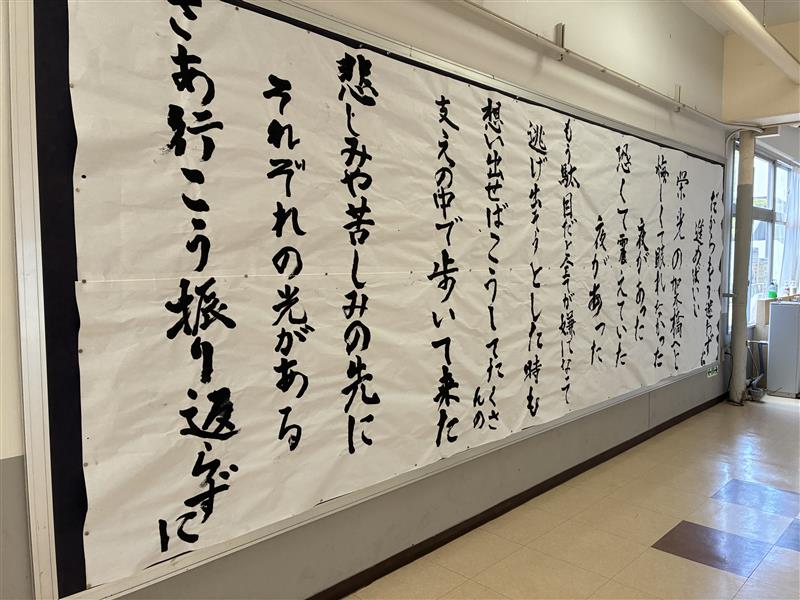 だからもう迷わずに
進めばいい
栄光の架橋へと
悔しくて眠れなかった
夜があった
恐くて震えていた
夜があった
もう駄目だと全てが嫌になって
逃げ出そうとした時も
想い出せばこうしてたくさ
んの
支えの中で歩いて来た
悲しみや苦しみの先に
それぞれの光がある
さあ行こう振り返らずに